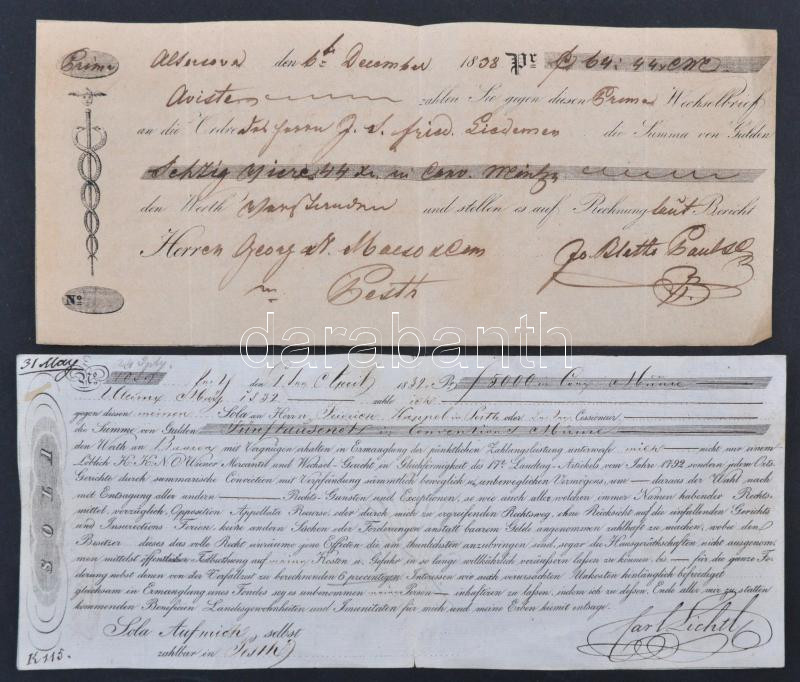 Prima den 6t December 1838 Pr f 64: 44x CMC
Avista zahlen Sie gegen diesen Prima Wechselbrief
an die Ordre des Herrn J. S. die Summa von Gulden
Sechzig Viere 44 Xr. in Conv. Müntze
den Werth Verstanden und stellen es auf Rechnung laut Bericht
Herren Georg
in Pesth
No
darabanth
31 May No
den 1ten April 1832. Pr f 5000 in Conv Münze
Ultimo May 1832 zahle ich
gegen diesen meinen Sola an Herrn Heinrich in Pesth oder Cessionär
die Summe von Gulden Fünftausend in Conventions Münze
den Werth an mit Vergnügen erhalten in Ermanglung der pünktlichen Zahlungsleistung unterwerfe mich nicht nur einem
Löblich K.K.N.O Wiener Mercantil und Wechsel-Gericht in Gleichförmigkeit des 17t Landtag-Artickels vom Jahre 1792 sondern jedem Orts
Gerichte durch summarische Conviction mit Verpfändung sämmtlich beweglich u. unbeweglichen Vermögens, um daraus der Wahl nach
mit Entsagung aller andern Rechts-Gunsten und Exceptionen, so wie auch aller welchen immer Namen habender Rechts-
mittel, vorzüglich, Opposition Appellate Recurse, oder durch mich zu ergreifenden Rechtsweg, ohne Rücksicht auf die einfallenden Gerichts
und Insurections Ferien, keine andern Sachen oder Forderungen anstatt baarem Geld angenommen zahlhaft zu machen, wobei dem
Besitzer dieses das volle Recht einräume jene Effecten die am thunlichsten anzubringen sind, sogar die Hausgeräthschaften nicht ausgenom-
men mittelst öffentlicher Feilbiethung auf meine Kosten u. Gefahr in so lange willkührlich veräußern lassen zu können bis für die ganze Fo-
derung nebst denen von der Verfallzeit zu berechnenden 6 procentigen Interessen wie auch verursachten Unkosten hinlänglich befriediget
gleichsam in Ermanglung eines Fondes sey es unbenommen meine Person inhaftiren zu lassen, indem ich zu dessen Ende aller, mir zu statten
kommenden Beneficien Landesgewohnheiten und Imunitäten für mich und meine Erben hiemit entsage.
SOLA
Sola Auf mich selbst
zahlbar in Pesth
Carl Lichtl
K 115.